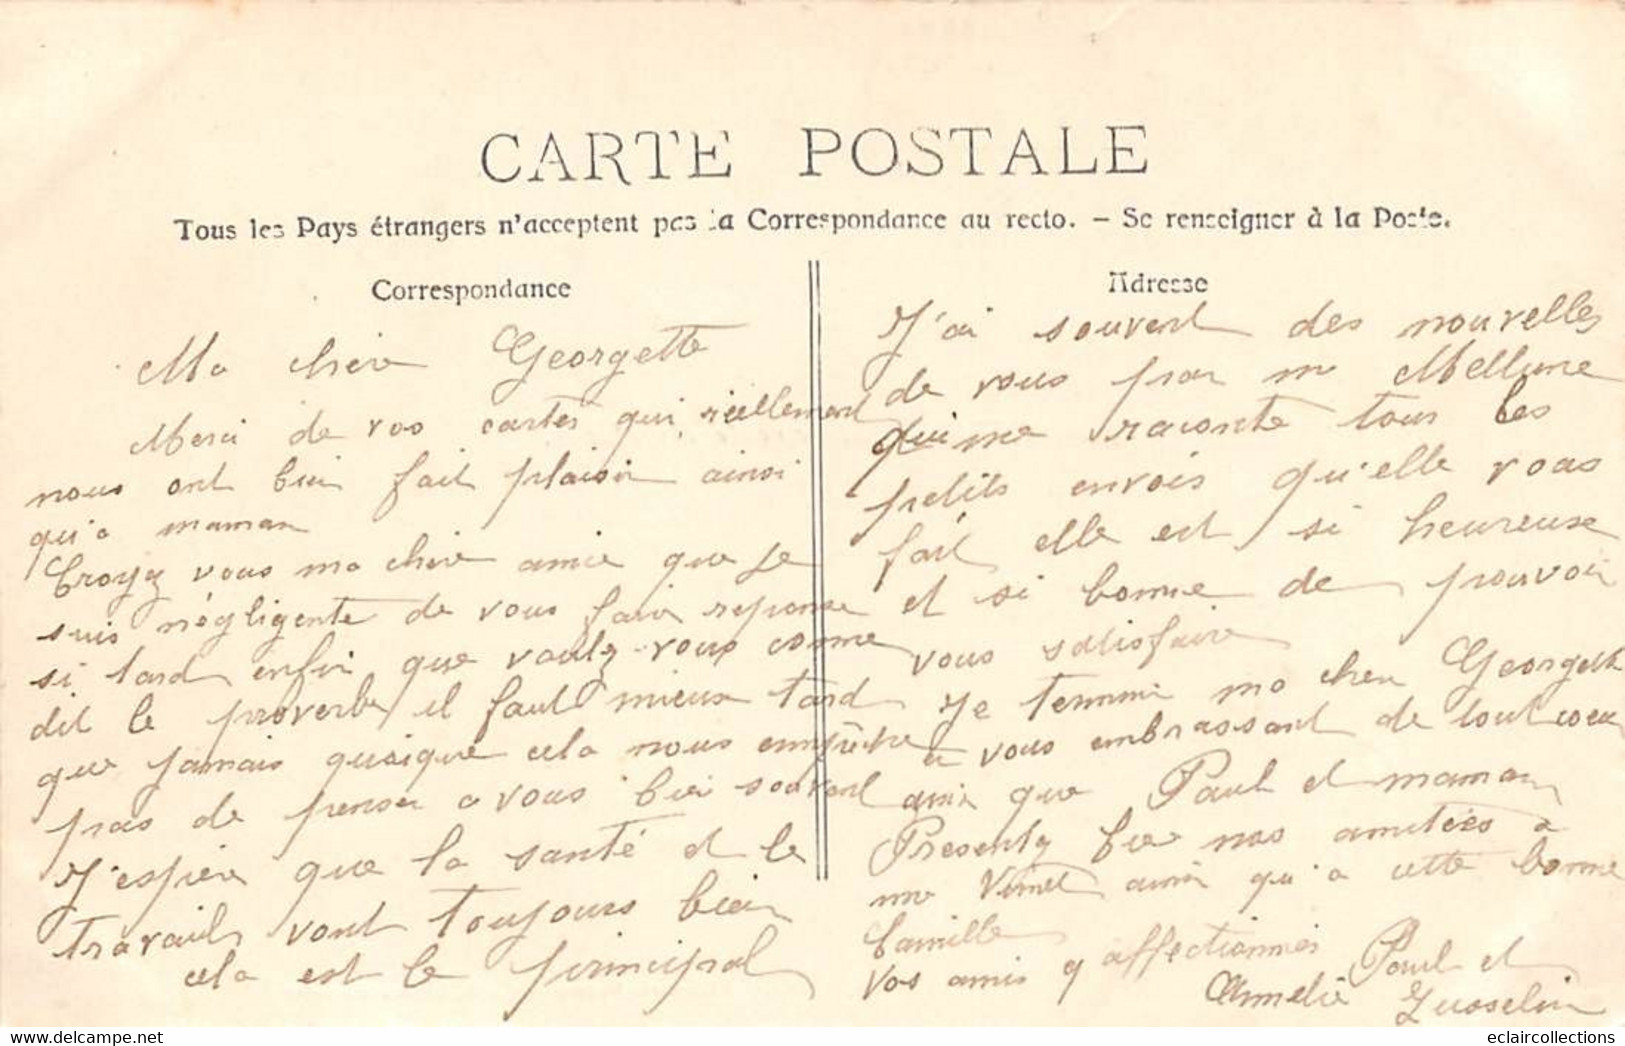 CARTE POSTALE
Tous les Pays étrangers n'acceptent pas la Correspondance au recto. — Se renseigner à la Poste.
Correspondance
Ma chère Georgette
Merci de vos cartes qui réellement
nous ont bien fait plaisir ainsi
qu'à maman
Croyez vous ma chère amie que je
suis négligente de vous faire reponse
si tard enfin que voulez-vous comme
dit le proverbe il faut mieux tard
que jamais quoique cela nous empêche
pas de penser a vous bien souvent
J'espère que la santé et le
travail vont toujours bien
cela est le principal
Adresse
J'ai souvent des nouvelles
de vous par m
qui me raconte tous les
petits envois qu'elle vous
fait elle est si heureuse
et si bonne de pouvoir
vous satisfaire
Je termine ma chere Georgette
en vous embrassant de tout coeur
ainsi que Paul et maman
Presentez bien nos amitiées a
me Vinet ainsi qu'a cette bonne
Camille
Vos amis affectionnés
Paul et
Amelie
eclaircollections